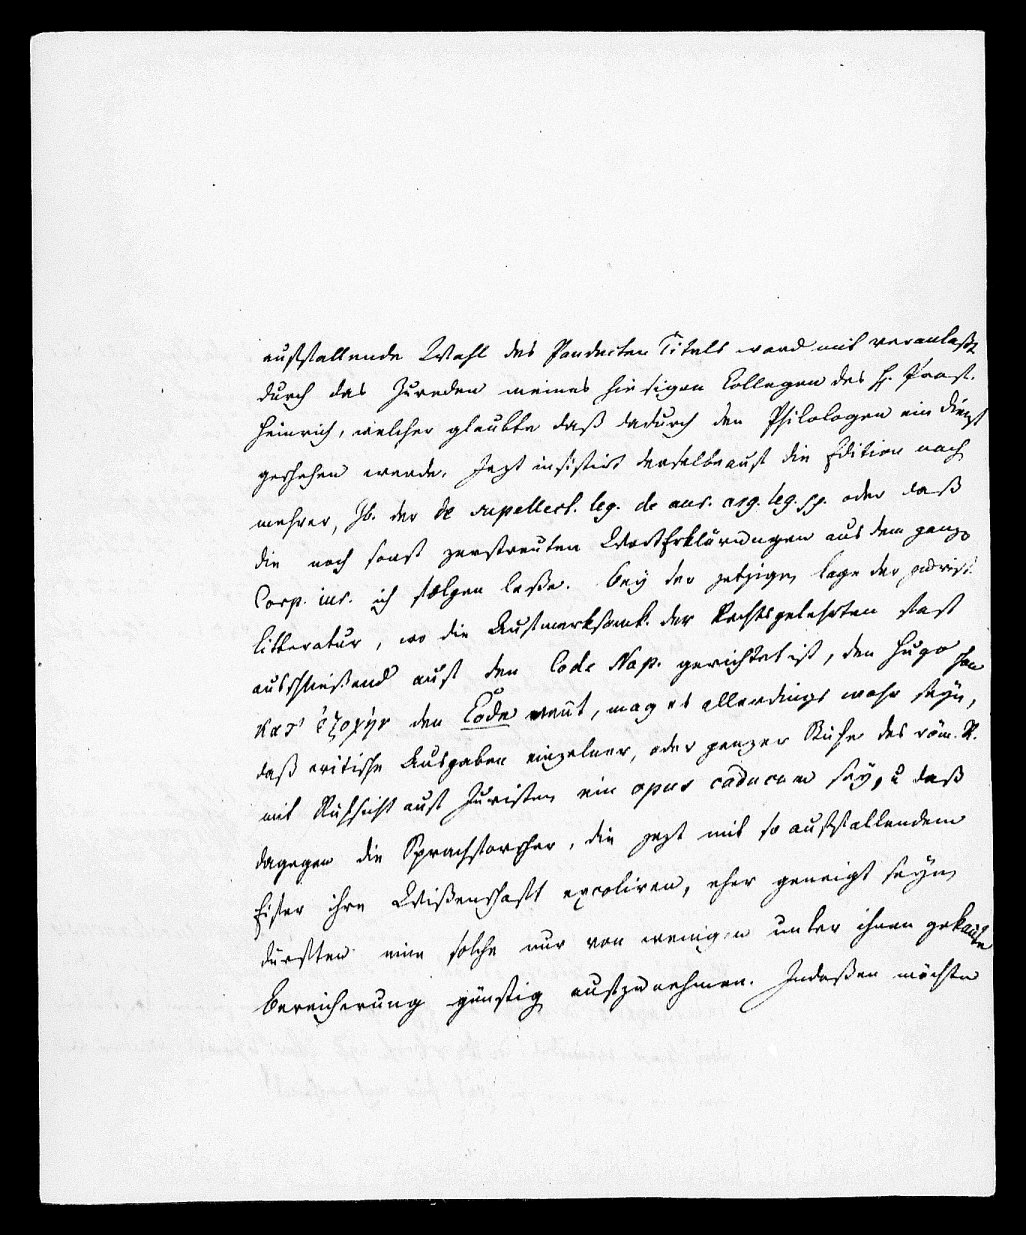 auffallende Wahl des Pandecten Titels ward mit veranlaßt
durch das Zureden meines hiesigen Collegen des H. Prof.
Heinrich, welcher glaubte daß dadurch den Philologen ein Dienst
geschehen werde. Jezt insistirt derselbe auf die Edition noch
mehrer, zb. der de supellect. leg. de aur. arg. leg. pp. oder daß
die noch sonst zerstreuten WortErklärungen aus dem ganze
Corp. iur. ich folgen laße. Bey der jetzigen Lage der jurist.
Litteratur, wo die Aufmerksamk. der Rechtsgelehrten fast
ausschließend auf den Code Nap. gerichtet ist, den Hugo schon
κατ' ἐξοχήν den Code nent, mag es allerdings wahr seyn,
daß critische Ausgaben einzelner, oder ganzer Bücher des röm. R.
mit Rücksicht auf Juristen ein opus caducum sey, u daß
dagegen die Sprachforscher, die jezt mit so auffallendem
Eifer ihre Wißenschaft excoliren, eher geneigt seyn
dürften eine solche nur von wenigen unter ihnen gekante
Bereicherung günstig aufzunehmen. Indeßen möchte